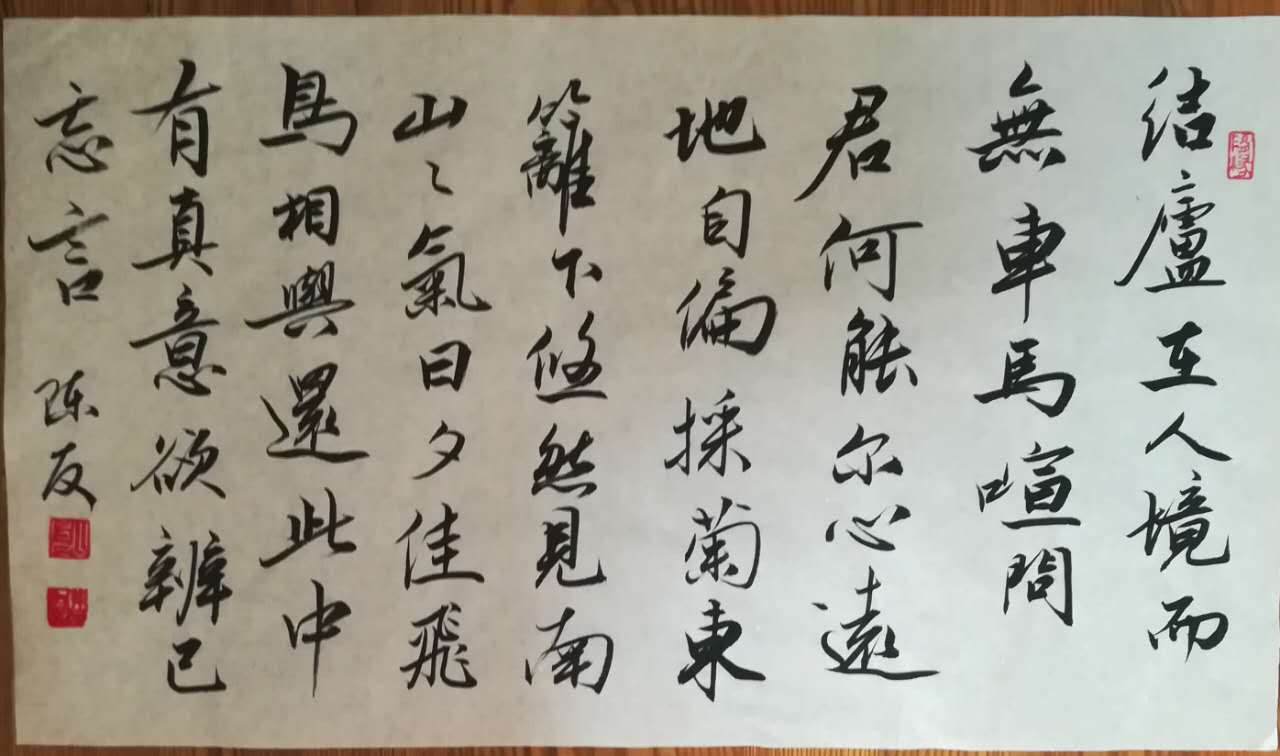 结廬在人境而
無車馬喧問
君何能尔心遠
地自偏採菊東
籬下悠然見南
山〻氣日夕佳飛
鳥相與還此中
有真意欲辨已
忘言 陈友